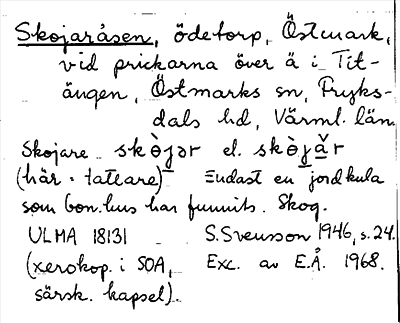 Skojaråsen, ödetorp, Östmark,
vid prickarna över ä i Tit-
ängen, Östmarks sn, Fryks-
dals hd, Värml. län.
Skojare skòjər el. skòjăr
(här = tattare) Endast en jordkula
som bon.hus har funnits. Skog.
ULMA 18131 S. Svensson 1946, s. 24.
(xerokop. i SOA, Exc. av E.Å. 1968.
särsk. kapsel).